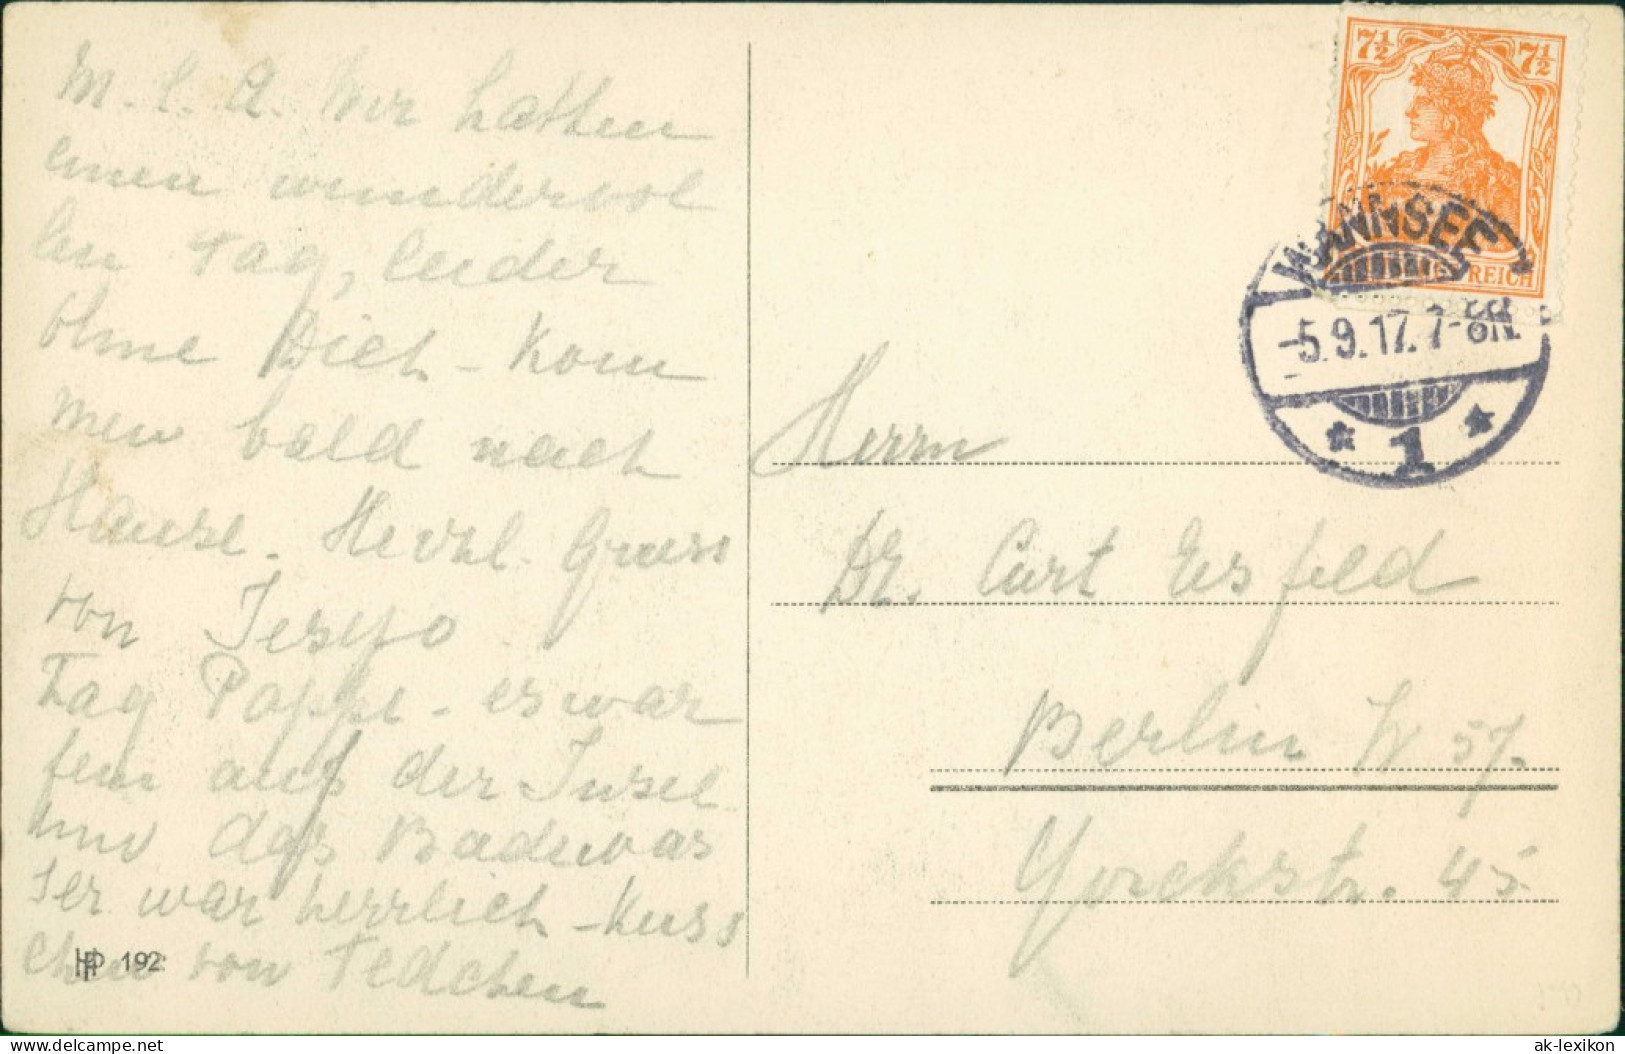 M. l. A. Wir hatten
einen wundervol
len Tag, leider
ohne Dich - Kom
men bald nach
Hause. Herzl. Gruss
von
Tag Pappe - es war
fein auf der Insel
und das Badewas
ser war herrlich - Küss
chen von Tedchen
HP 192
7½ 7½
REICH
WANNSEE
-5.9.17. 7-8N.
* 1 *
Herrn
Dr. Curt Eisfeld
Berlin W 57.
Yorckstr. 45
ansichtskarten-lexikon.de
ak-lexikon